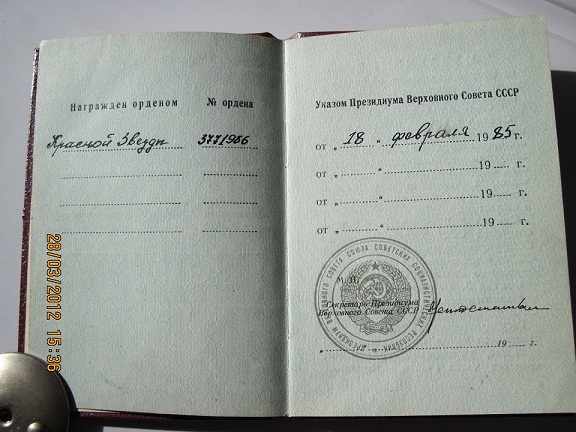 Награжден орденом № ордена
Красной Звезды 3771966
Указом Президиума Верховного Совета СССР
от „ 18 “ февраля 1985 г.
от „ “ 19 г.
от „ “ 19 г.
от „ “ 19 г.
ПРЕЗИДИУМ ВЕРХОВНОГО СОВЕТА СОЮЗА СОВЕТСКИХ СОЦИАЛИСТИЧЕСКИХ РЕСПУБЛИК
М. П.
Секретарь Президиума
Верховного Совета СССР
„ “ 19 г.
28/03/2012 15:36